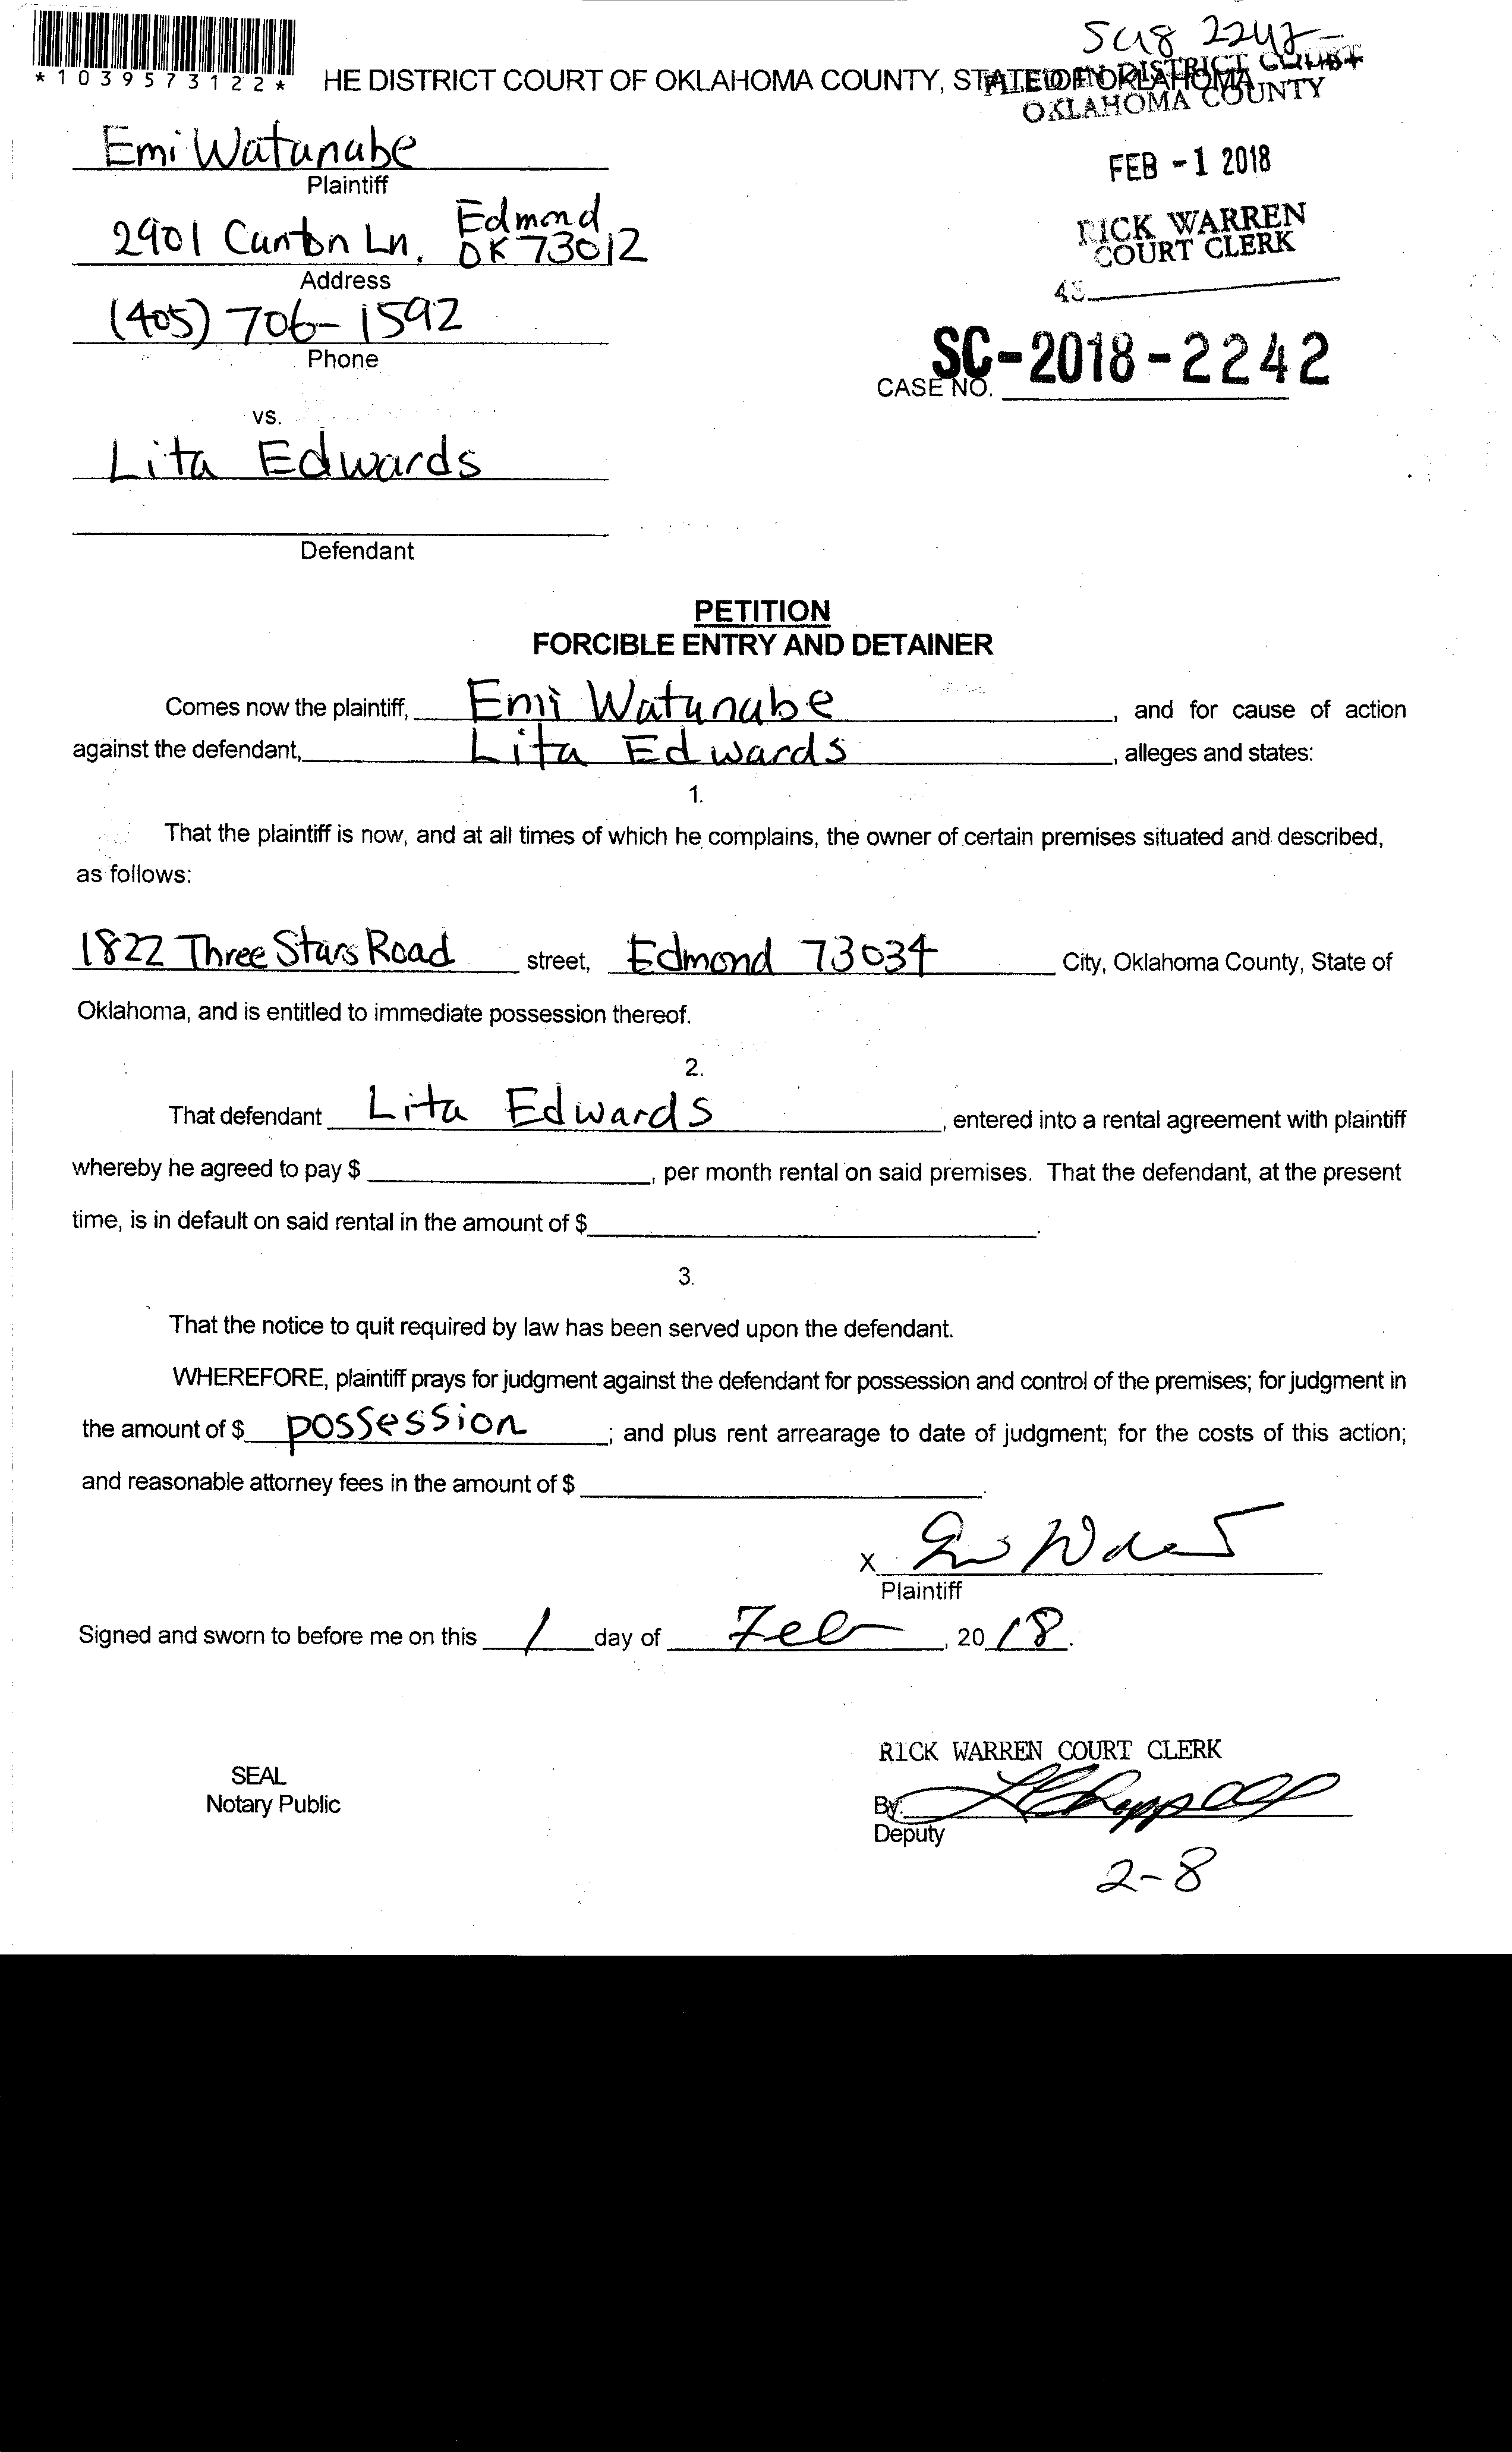 SC18 2242-
*1039573122*
HE DISTRICT COURT OF OKLAHOMA COUNTY, STATE OF OKLAHOMA
FILED IN DISTRICT COURT
OKLAHOMA COUNTY
Emi Watanabe
Plaintiff
FEB -1 2018
2901 Canton Ln. Edmond
OK 73012
Address
RICK WARREN
COURT CLERK
(405) 706-1592
Phone
SC-2018-2242
CASE NO.
vs.
Lita Edwards
Defendant
PETITION
FORCIBLE ENTRY AND DETAINER
Comes now the plaintiff, Emi Watanabe, and for cause of action
against the defendant, Lita Edwards, alleges and states:
1.
That the plaintiff is now, and at all times of which he complains, the owner of certain premises situated and described,
as follows:
1822 Three Stars Road street, Edmond 73034 City, Oklahoma County, State of
Oklahoma, and is entitled to immediate possession thereof.
2.
That defendant Lita Edwards, entered into a rental agreement with plaintiff
whereby he agreed to pay $, per month rental on said premises. That the defendant, at the present
time, is in default on said rental in the amount of $.
3.
That the notice to quit required by law has been served upon the defendant.
WHEREFORE, plaintiff prays for judgment against the defendant for possession and control of the premises; for judgment in
the amount of $ possession; and plus rent arrearage to date of judgment; for the costs of this action;
and reasonable attorney fees in the amount of $.
X
Plaintiff
Signed and sworn to before me on this 1 day of Feb, 2018.
RICK WARREN COURT CLERK
SEAL
Notary Public
By:
Deputy
2-8